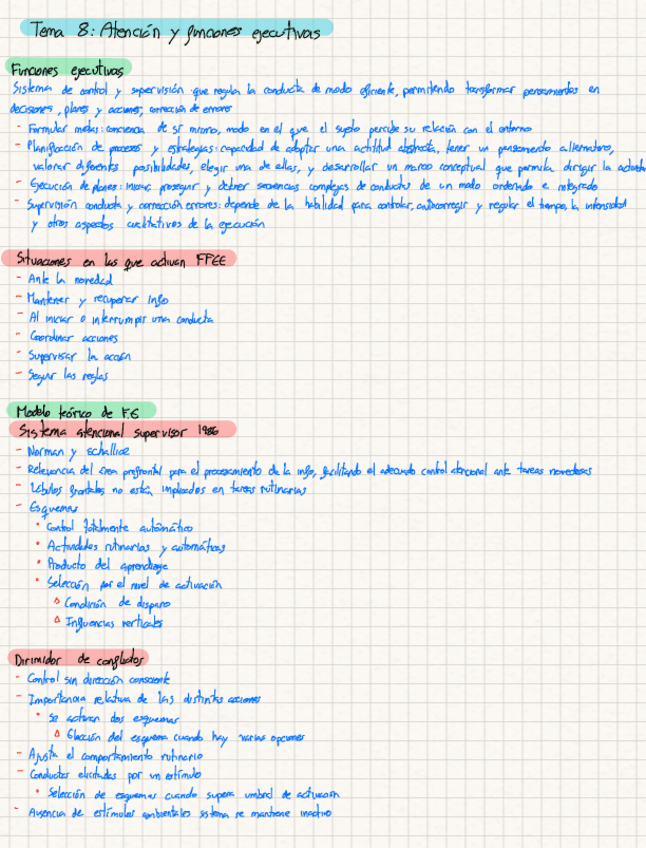 Tema 8: Atención y funciones ejecutivas
Funciones ejecutivas
Sistema de control y supervisión que regula la conducta de modo eficiente, permitiendo transformar pensamientos en
decisiones, planes y acciones, corrección de errores
- Formular metas: conciencia de sí mismo, modo en el que el sujeto percibe su relación con el entorno
- Planificación de procesos y estrategias: capacidad de adoptar una actitud abstracta, tener un pensamiento alternativo,
valorar diferentes posibilidades, elegir una de ellas, y desarrollar un marco conceptual que permita dirigir la
- Ejecución de planes: iniciar, proseguir y detener secuencias complejas de conductas de un modo ordenado e integrado
- Supervisión conducta y corrección errores: depende de la habilidad para controlar, autocorregir y regular el tiempo, la intensidad
y otros aspectos cualitativos de la ejecución
Situaciones en las que activan FFEE
- Ante la novedad
- Mantener y recuperar info
- Al iniciar o interrumpir una conducta
- Coordinar acciones
- Supervisar la acción
- Seguir las reglas
Modelo teórico de FE
Sistema atencional supervisor 1986
- Norman y Schallice
- Relevancia del área prefrontal para el procesamiento de la info, facilitando el adecuado control atencional ante tareas novedosas
- Lóbulos frontales no están implicados en tareas rutinarias
- Esquemas
• Control totalmente automático
• Actividades rutinarias y automáticas
• Producto del aprendizaje
• Selección por el nivel de activación
△ Condición de disparo
△ Influencias verticales
Dirimidor de conflictos
- Control sin dirección consciente
- Importancia relativa de las distintas acciones
• Se activan dos esquemas
△ Elección del esquema cuando hay varias opciones
- Ajusta el comportamiento rutinario
- Conductas elicitadas por un estímulo
• Selección de esquemas cuando supera umbral de activación
- Ausencia de estímulos ambientales sistema se mantiene inactivo